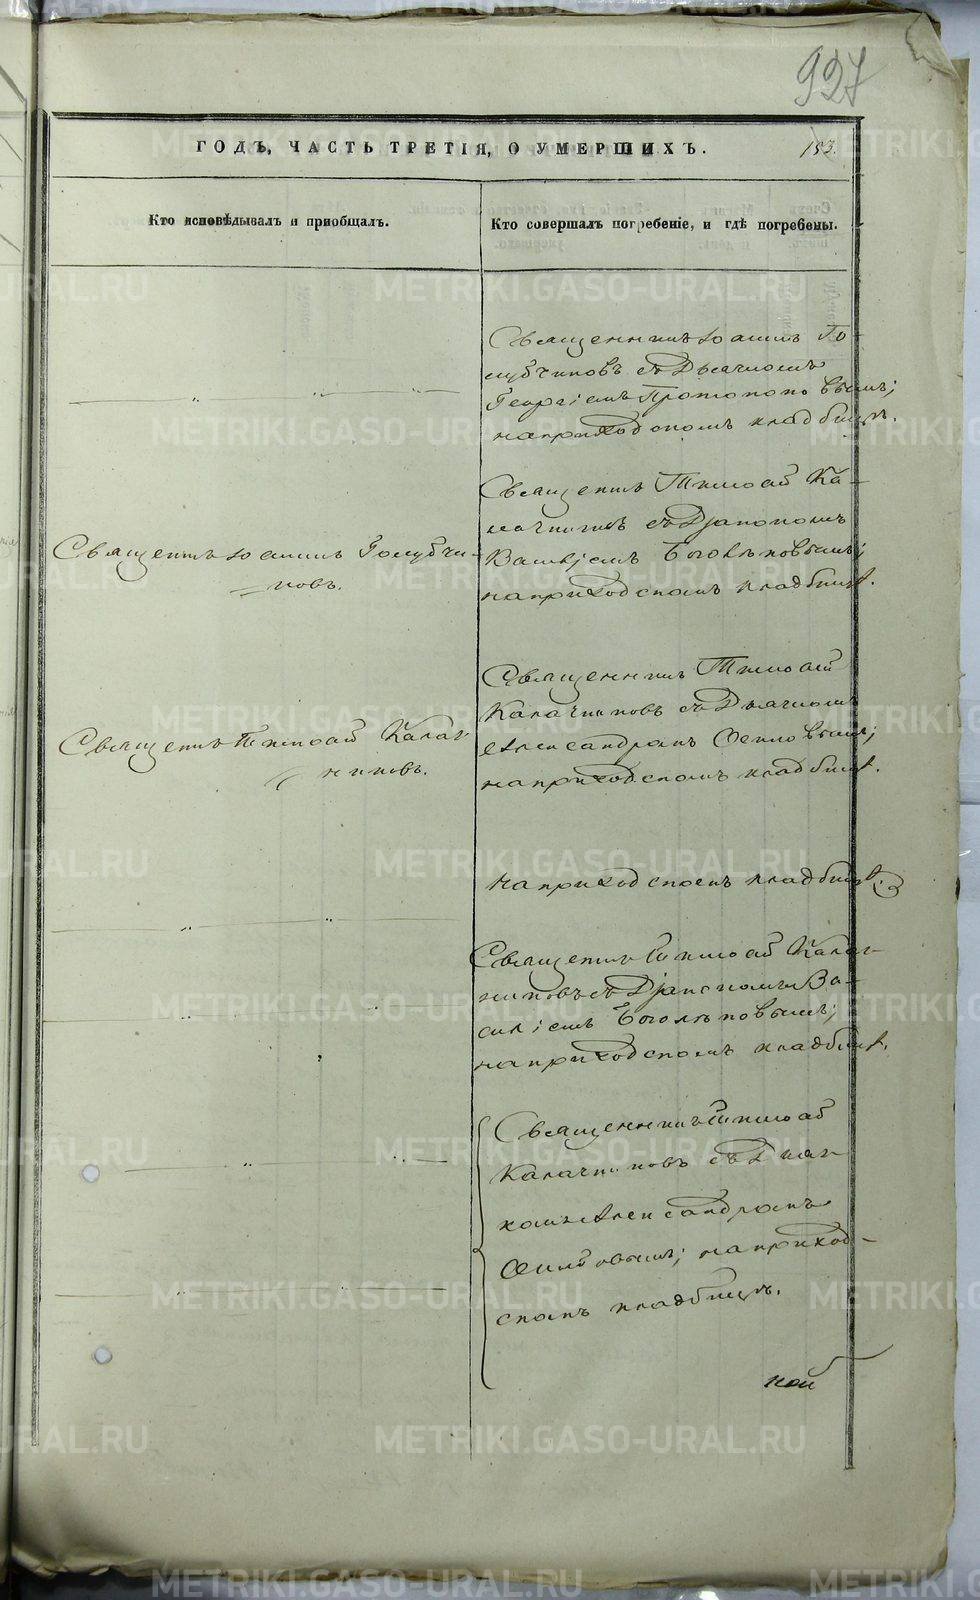 927
ГОДЪ, ЧАСТЬ ТРЕТІЯ, О УМЕРШИХЪ.
153.
Кто исповѣдывалъ и пріобщалъ.
Кто совершалъ погребеніе, и гдѣ погребены.
Священникъ Іоаннъ Го-
лубчиковъ съ Дьячкомъ
Георгіемъ Протопоповымъ;
на приходскомъ кладбищѣ.
Священъ Іоаннъ Голубчи-
ковъ.
Священъ Тимофей Ка-
лачниковъ съ Діакономъ
Василіемъ Боголѣповымъ;
на приходскомъ кладбищѣ.
Священъ Тимофей Калач-
никовъ.
Священникъ Тимофей
Калачниковъ съ Дьячкомъ
Александромъ
на приходскомъ кладбищѣ.
на приходскомъ кладбищѣ.
Священникъ Тимофей Калач-
никовъ съ Діакономъ Ва-
силіемъ Боголѣповымъ;
на приходскомъ кладбищѣ.
Священникъ Тимофей
Калачниковъ съ Дьяч-
комъ Александромъ
на приход-
скомъ кладбищѣ.
METRIKI.GASO-URAL.RU